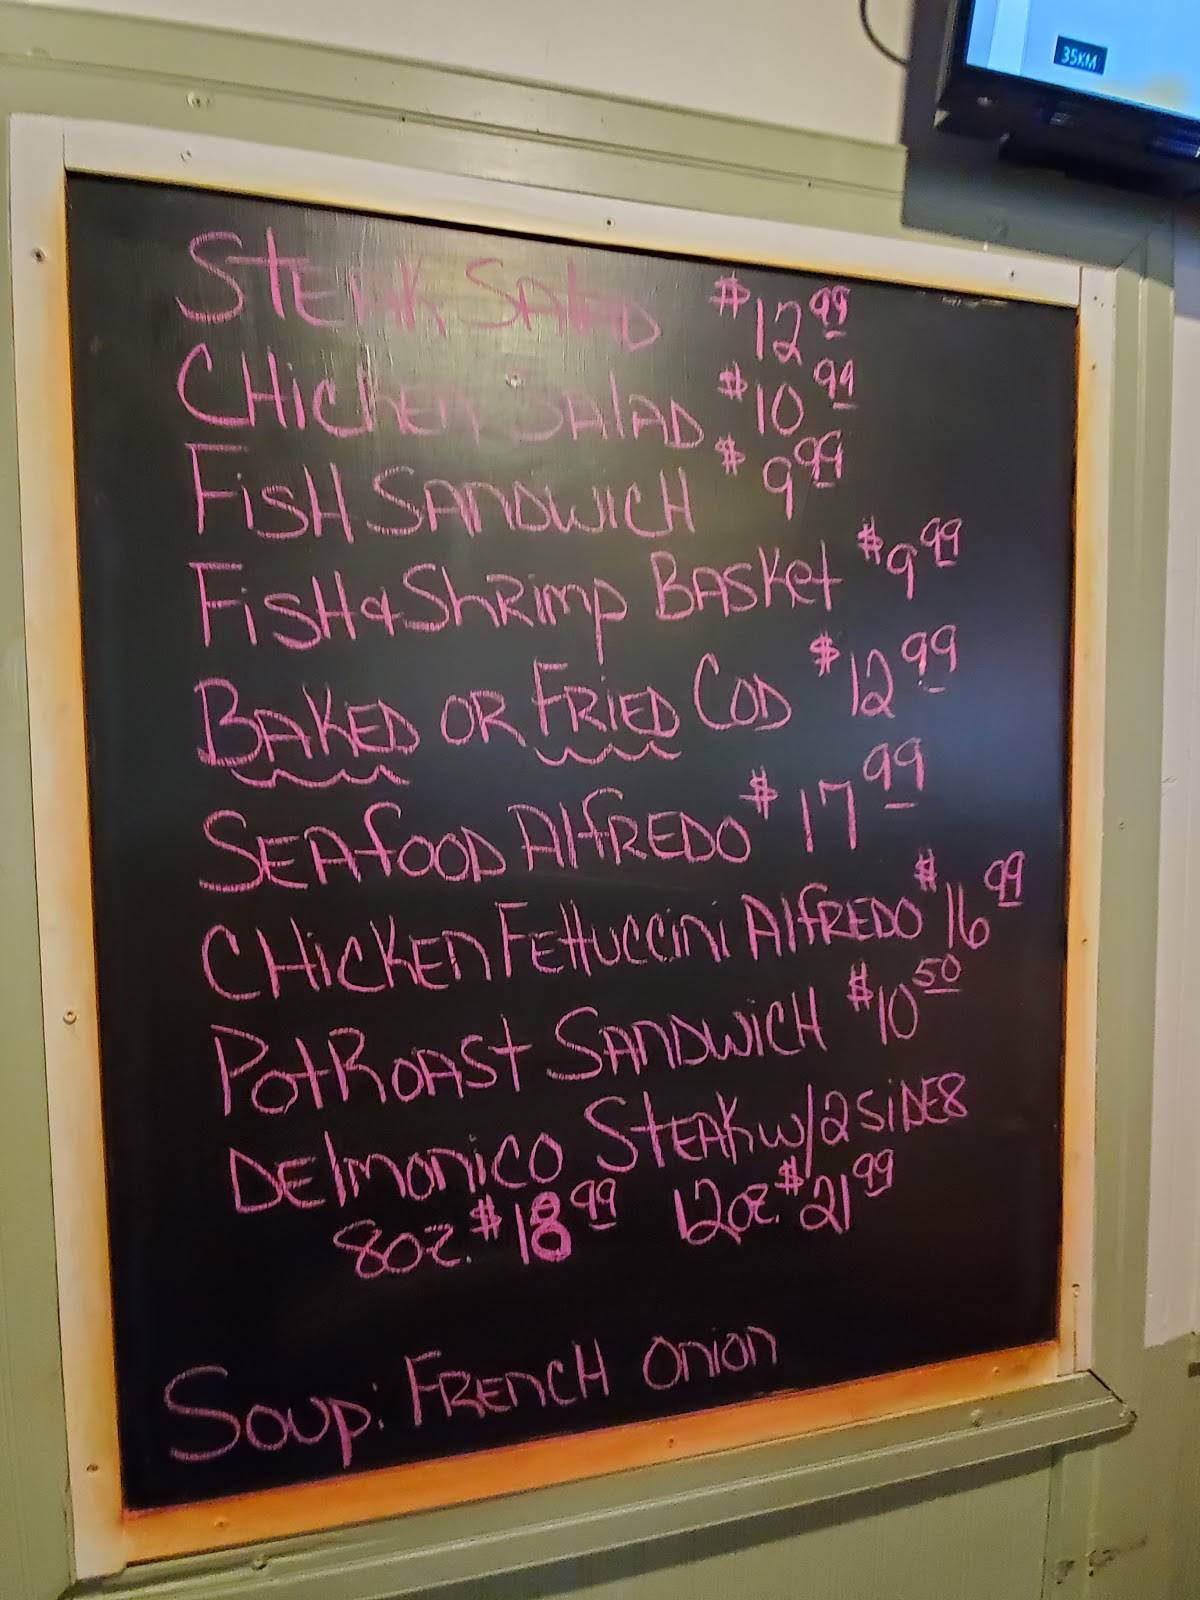 35KM
STEAK SALAD $12.99
CHicken SALAD $10.99
FiSH SANDWICH $9.99
FiSH & ShRimp BASKet $9.99
BAKED OR FRiED COD $12.99
SEAfOOD AlfREDO $17.99
CHiCKEN FEttuccini AlfREDO $16.99
POtROAST SANDWiCH $10.50
DElmonico STEAK w/2 SiDES
8oz. $18.99 12oz. $21.99
Soup: FRENCH Onion